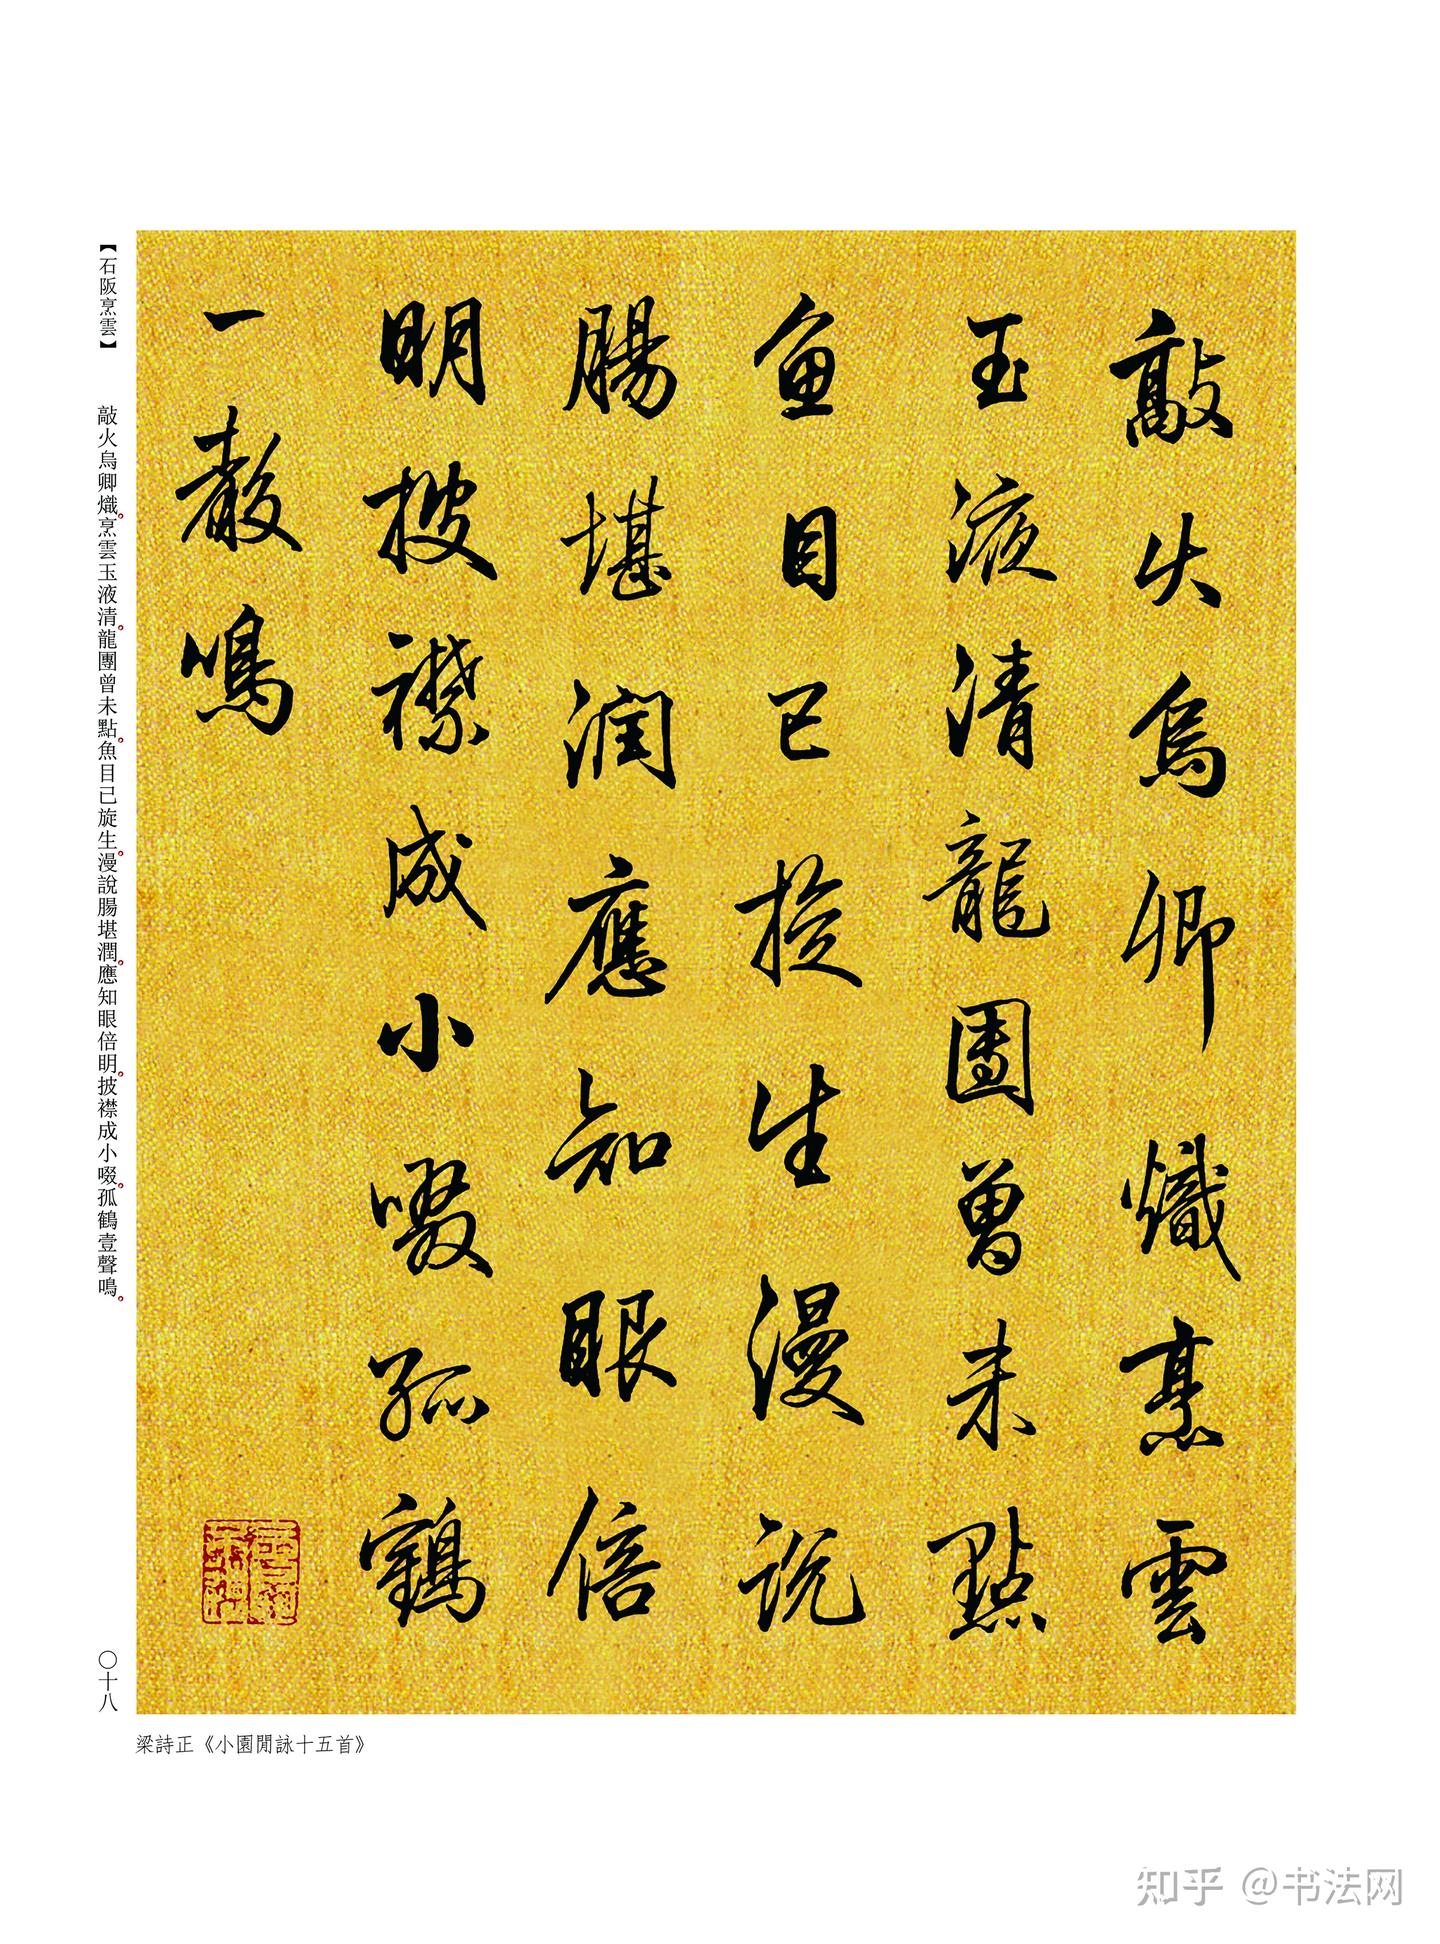 敲火烏卿熾烹雲
玉液清龍團曾未點
魚目已旋生漫說
腸堪潤應知眼倍
明披襟成小啜孤鶴
一聲鳴
【石阪烹雲】 敲火烏卿熾。烹雲玉液清。龍團曾未點。魚目已旋生。漫說腸堪潤。應知眼倍明。披襟成小啜。孤鶴壹聲鳴。
〇十八
梁詩正《小園閒詠十五首》
知乎 @书法网